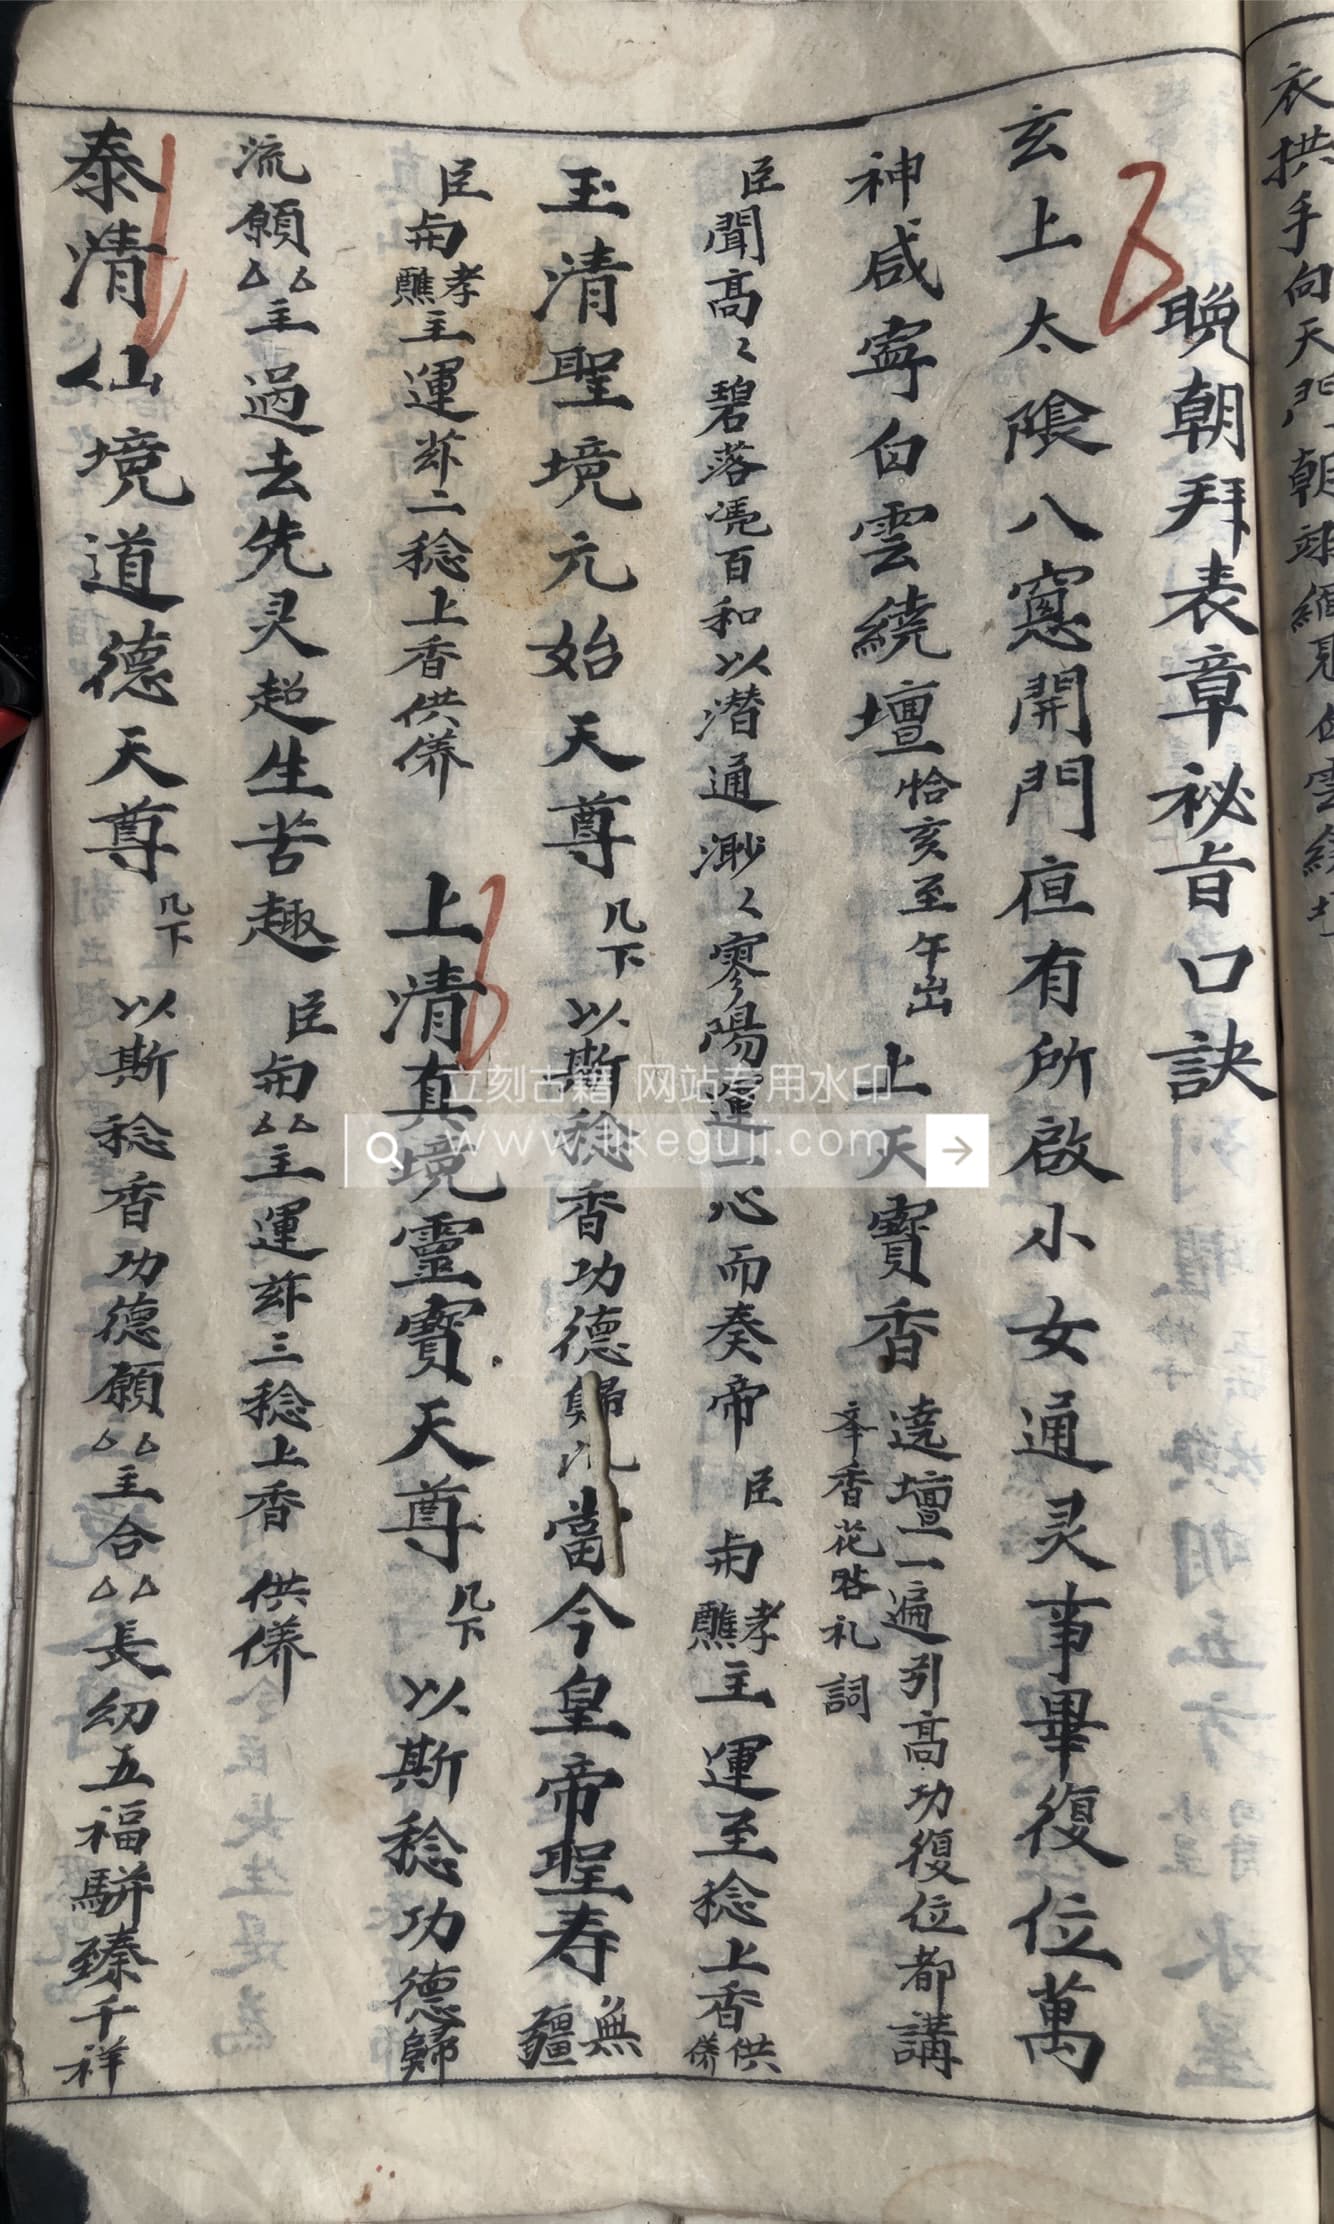 衣拱手向天門朝
晚朝拜表章祕旨口訣
玄上太隂八窻開門宣有所啟小女通灵事畢復位萬
神咸寧白雲繞壇恰亥至午出上天寳香遶壇一遍引高功復位都講
举香花咎礼詞
臣聞高〻碧落凴百和以潜通渺〻寥陽運一心而奏帝臣
孝醮主運至稔上香供俻
玉清聖境元始天尊几下以斯稔香功德歸
當今皇帝聖寿無疆
臣
孝醮主運玆二稔上香供俻上清真境靈寳天尊几下以斯稔功德歸
流願厶厶主過去先灵超生苦趣臣
厶厶主運玆三稔上香供俻
泰清仙境道德天尊几下以斯稔香功德願厶厶主合厶厶長幼五福駢臻千祥
立刻古籍 网站专用水印
www.likeguji.com